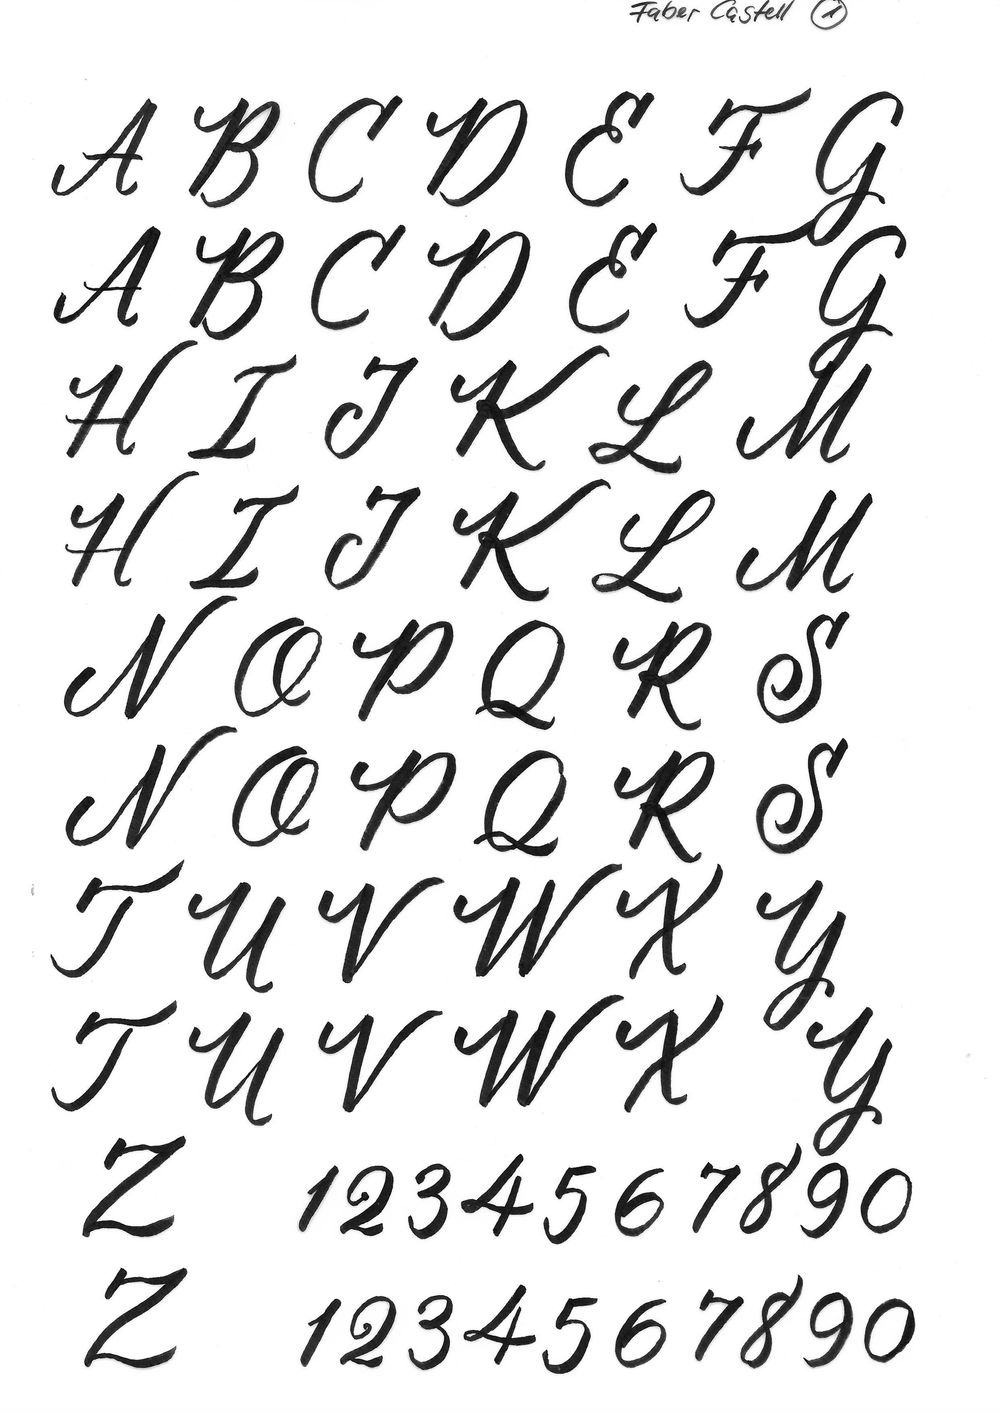 Faber Castell 1
A B C D E F G
A B C D E F G
H I J K L M
H I J K L M
N O P Q R S
N O P Q R S
T U V W X Y
T U V W X Y
Z 1 2 3 4 5 6 7 8 9 0
Z 1 2 3 4 5 6 7 8 9 0